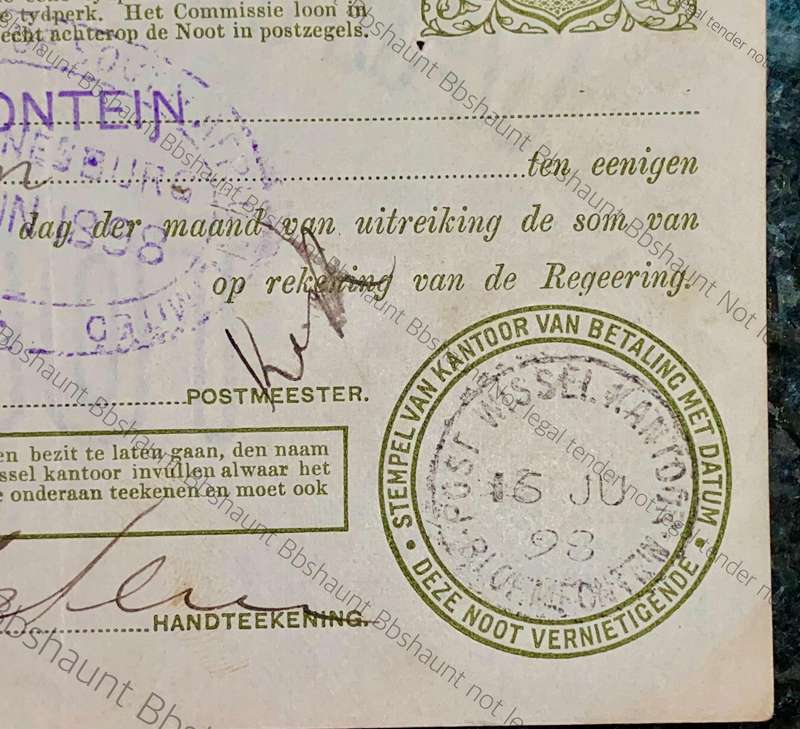 tydperk. Het Commissie loon in
echt achterop de Noot in postzegels.
ONTEIN.
ten eenigen
dag der maand van uitreiking de som van
op rekening van de Regeering.
1898
POSTMEESTER.
STEMPEL VAN KANTOOR VAN BETALING MET DATUM
DEZE NOOT VERNIETIGENDE
POST WISSEL KANTOOR
16 JU
98
BLOEMFONTEIN
en bezit te laten gaan, den naam
ssel kantoor invullen alwaar het
e onderaan teekenen en moet ook
HANDTEEKENING.
Bbshaunt Not legal tender